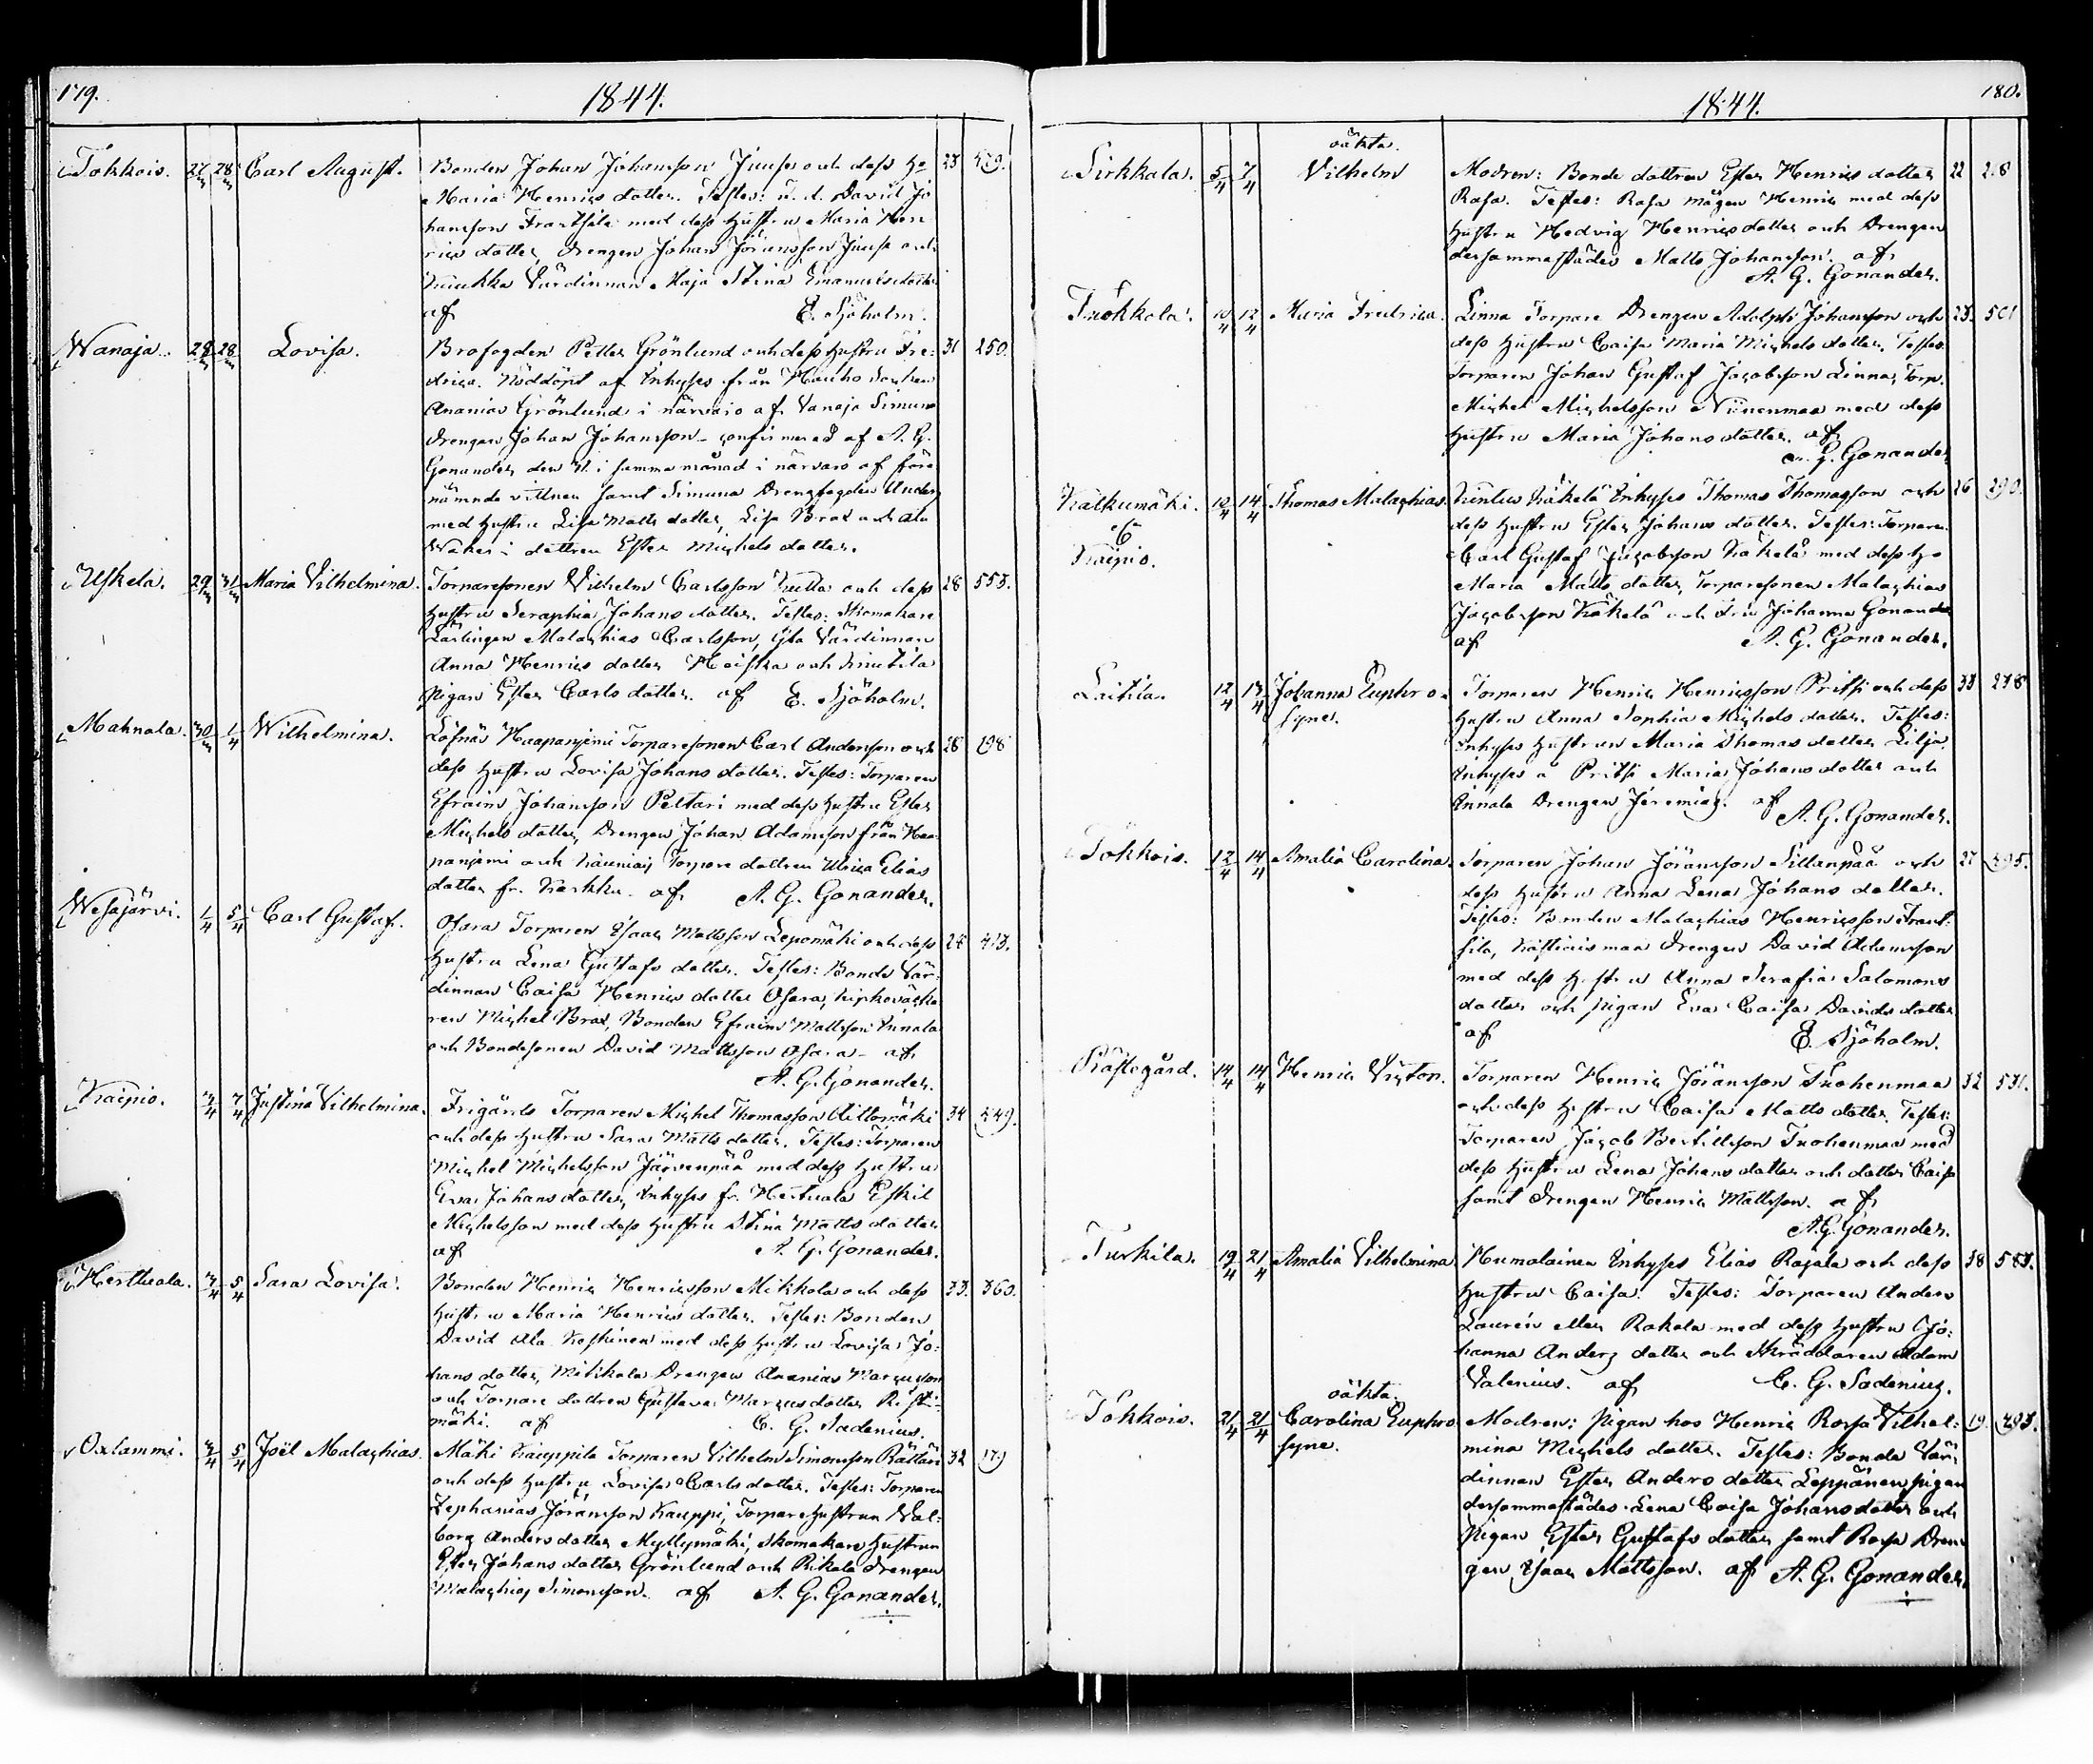 179.
1844.
Tokkois. 27/m 28/m Carl August. Bonden Johan Johansson Juusi och dess H= 23 479.
Maria Henrics dotter. Testes: n. d. David Jo
hansson Franssila med dess hustru Maria Hen
rics dotter, drengen Johan Joransson Juusi och
Värdinnan Maja Stina Emanuelsdotter
af E. Sjöholm.
Wanaja. 28/m 28/m Lovisa. Brofogden Petter Grönlund och dess hustru Fre= 31 250.
drica. Nöddöpt af Inhyses från Hauho Socken
Ananias Grönlund i närvaro af Vanaja Simuna
drengen Johan Johansson - confirmerad af A. G.
Gonander, den 31. i samma månad i närvaro af före
nämnde vittnen samt Simuna Drengfogden Anders
med hustru Lisa Matts dotter, Lisa Brax och Ala
dottren Ester Michels dotter.
Uskela. 29/m 31/m Maria Vilhelmina. Torparesonen Vilhelm Carlsson och dess 28 553.
hustru Seraphia Johans dotter. Testes: Skomakare
Lärlingen Malachias Carlsson, Värdinnan
Anna Henrics dotter Heiska och
Pigan Ester Carls dotter. af E. Sjöholm.
Mahnala. 30/m 1/4 Wilhelmina. Löfnäs Haapaniemi Torparesonen Carl Andersson och 28 198
dess hustru Lovisa Johans dotter. Testes: Torparen
Efraim Johansson Peltari med dess hustru Ester
Michels dotter, Drengen Johan Adamsson från Haa
paniemi och Torpare dottren Ulrica Elias
dotter fr. Karkku. af A. G. Gonander.
Wesajärvi. 1/4 5/4 Carl Gustaf. Osara Torparen Isaac Mattsson Lepomäki och dess 28 413.
hustru Lena Gustafs dotter. Testes: Bonde Vär=
dinnan Caisa Henrics dotter Osara, Kyrkoväkta
ren Michel Brax, Bonden Efraim Mattsson Innala
och Bondesonen David Mattsson Osara - af
A. G. Gonander.
Kaipio. 3/4 7/4 Justina Vilhelmina. Frigärds Torparen Michel Thomasson Aittomäki 34 549.
och dess hustru Sara Matts dotter. Testes: Torparen
Michel Michelsson Järvenpää med dess hustru
Eva Johans dotter, Inhyses fr. Herttuala Eskil
Michelsson med dess hustru Stina Matts dotter
af A. G. Gonander.
Herttuala. 3/4 5/4 Sara Lovisa. Bonden Henric Henricsson Mikkola och dess 33. 360.
hustru Maria Henrics dotter. Testes: Bonden
David Ala Koskinen med dess hustru Lovisa Jo=
hans dotter, Mikkola Drengen Ananias Marcusson
och Torpare dottren Gustava Marcus dotter Risti=
mäki. af C. G. Sadenius.
Oxlammi. 3/4 5/4 Joël Malachias. Mäki Kauppila Torparen Vilhelm Simonsson Rättäri 32 17.
och dess hustru Lovisa Carls dotter. Testes: Torparen
Zephanias Joransson Kauppi, Torpare hustrun Wal=
borg Anders dotter Myllymäki, Skomakare hustrun
Ester Johans dotter Grönlund och Rikala Drengen
Malachias Simonsson. af A. G. Gonander.
180.
1844.
oäkta.
Sirkkala. 5/4 7/4 Vilhelm Modren: Bonde dottren Ester Henrics dotter 22 218
Rasa. Testes: Rasa mågen Henric med dess
hustru Hedvig Henrics dotter och Drengen
dersammastädes Matts Johansson. af
A. G. Gonander.
Tuokkola. 10/4 12/4 Maria Fredrica. Linna Torpare Drengen Adolph Johansson och 23. 501
dess hustru Caisa Maria Michels dotter. Testes:
Torparen Johan Gustaf Jacobsson Linna, Torp.
Michel Michelsson Niinenmaa med dess
hustru Maria Johans dotter. af
A. G. Gonander
Kalkumäki. 12/4 14/4 Thomas Malachias. Käkelä Inhyses Thomas Thomasson och 26 290.
&
Kaipio.
dess hustru Ester Johans dotter. Testes: Torparen
Carl Gustaf Jacobsson Käkelä med dess H=
Maria Matts dotter, Torparesonen Malachias
Jacobsson Käkelä och Fru Johanna Gonander
af A. G. Gonander.
Laitia. 12/4 13/4 Johanna Euphro= Torparen Henric Henricsson Pritsi och dess 33 238
syne.
hustru Anna Sophia Michels dotter. Testes:
Inhyses hustrun Maria Thomas dotter Lilja
Inhyses å Pritsi Maria Johans dotter och
Innala Drengen Jeremias. af A. G. Gonander.
Tokkois. 12/4 14/4 Amalia Carolina. Torparen Johan Joransson Sillanpää och 27 495.
dess hustru Anna Lena Johans dotter.
Testes: Bonden Malachias Henricsson Frans=
sila, drengen David Adamsson
med dess hustru Anna Serafia Salomons
dotter och pigan Eva Caisa Davids dotter
af E. Sjöholm.
Prästegård. 14/4 14/4 Henric Victor. Torparen Henric Joransson Tuohenmaa 32 531.
och dess hustru Caisa Matts dotter. Testes:
Torparen Jacob Bertillsson Tuohenmaa med
dess hustru Lena Johans dotter och dotter Caisa
samt drengen Henric Mattsson. af
A. G. Gonander.
Turkila. 19/4 21/4 Amalia Vilhelmina Humalainen Inhyses Elias Rajala och dess 38 583.
hustru Caisa. Testes: Torparen Anders
Laurén eller Rakala med dess hustru Jo=
hanna Anders dotter och Skräddaren Adam
Valenius. af C. G. Sadenius.
oäkta.
Tokkois. 21/4 21/4 Carolina Euphro Modren: pigan hos Henric Rossa Vilhel= 19. 493.
syne.
mina Michels dotter. Testes: Bonde Vär=
dinnan Ester Anders dotter Leppänen, pigan
dersammastädes Lena Caisa Johans dotter och
Pigan Ester Gustafs dotter samt Rossa Dren
gen Isaac Mattsson. af A. G. Gonander.